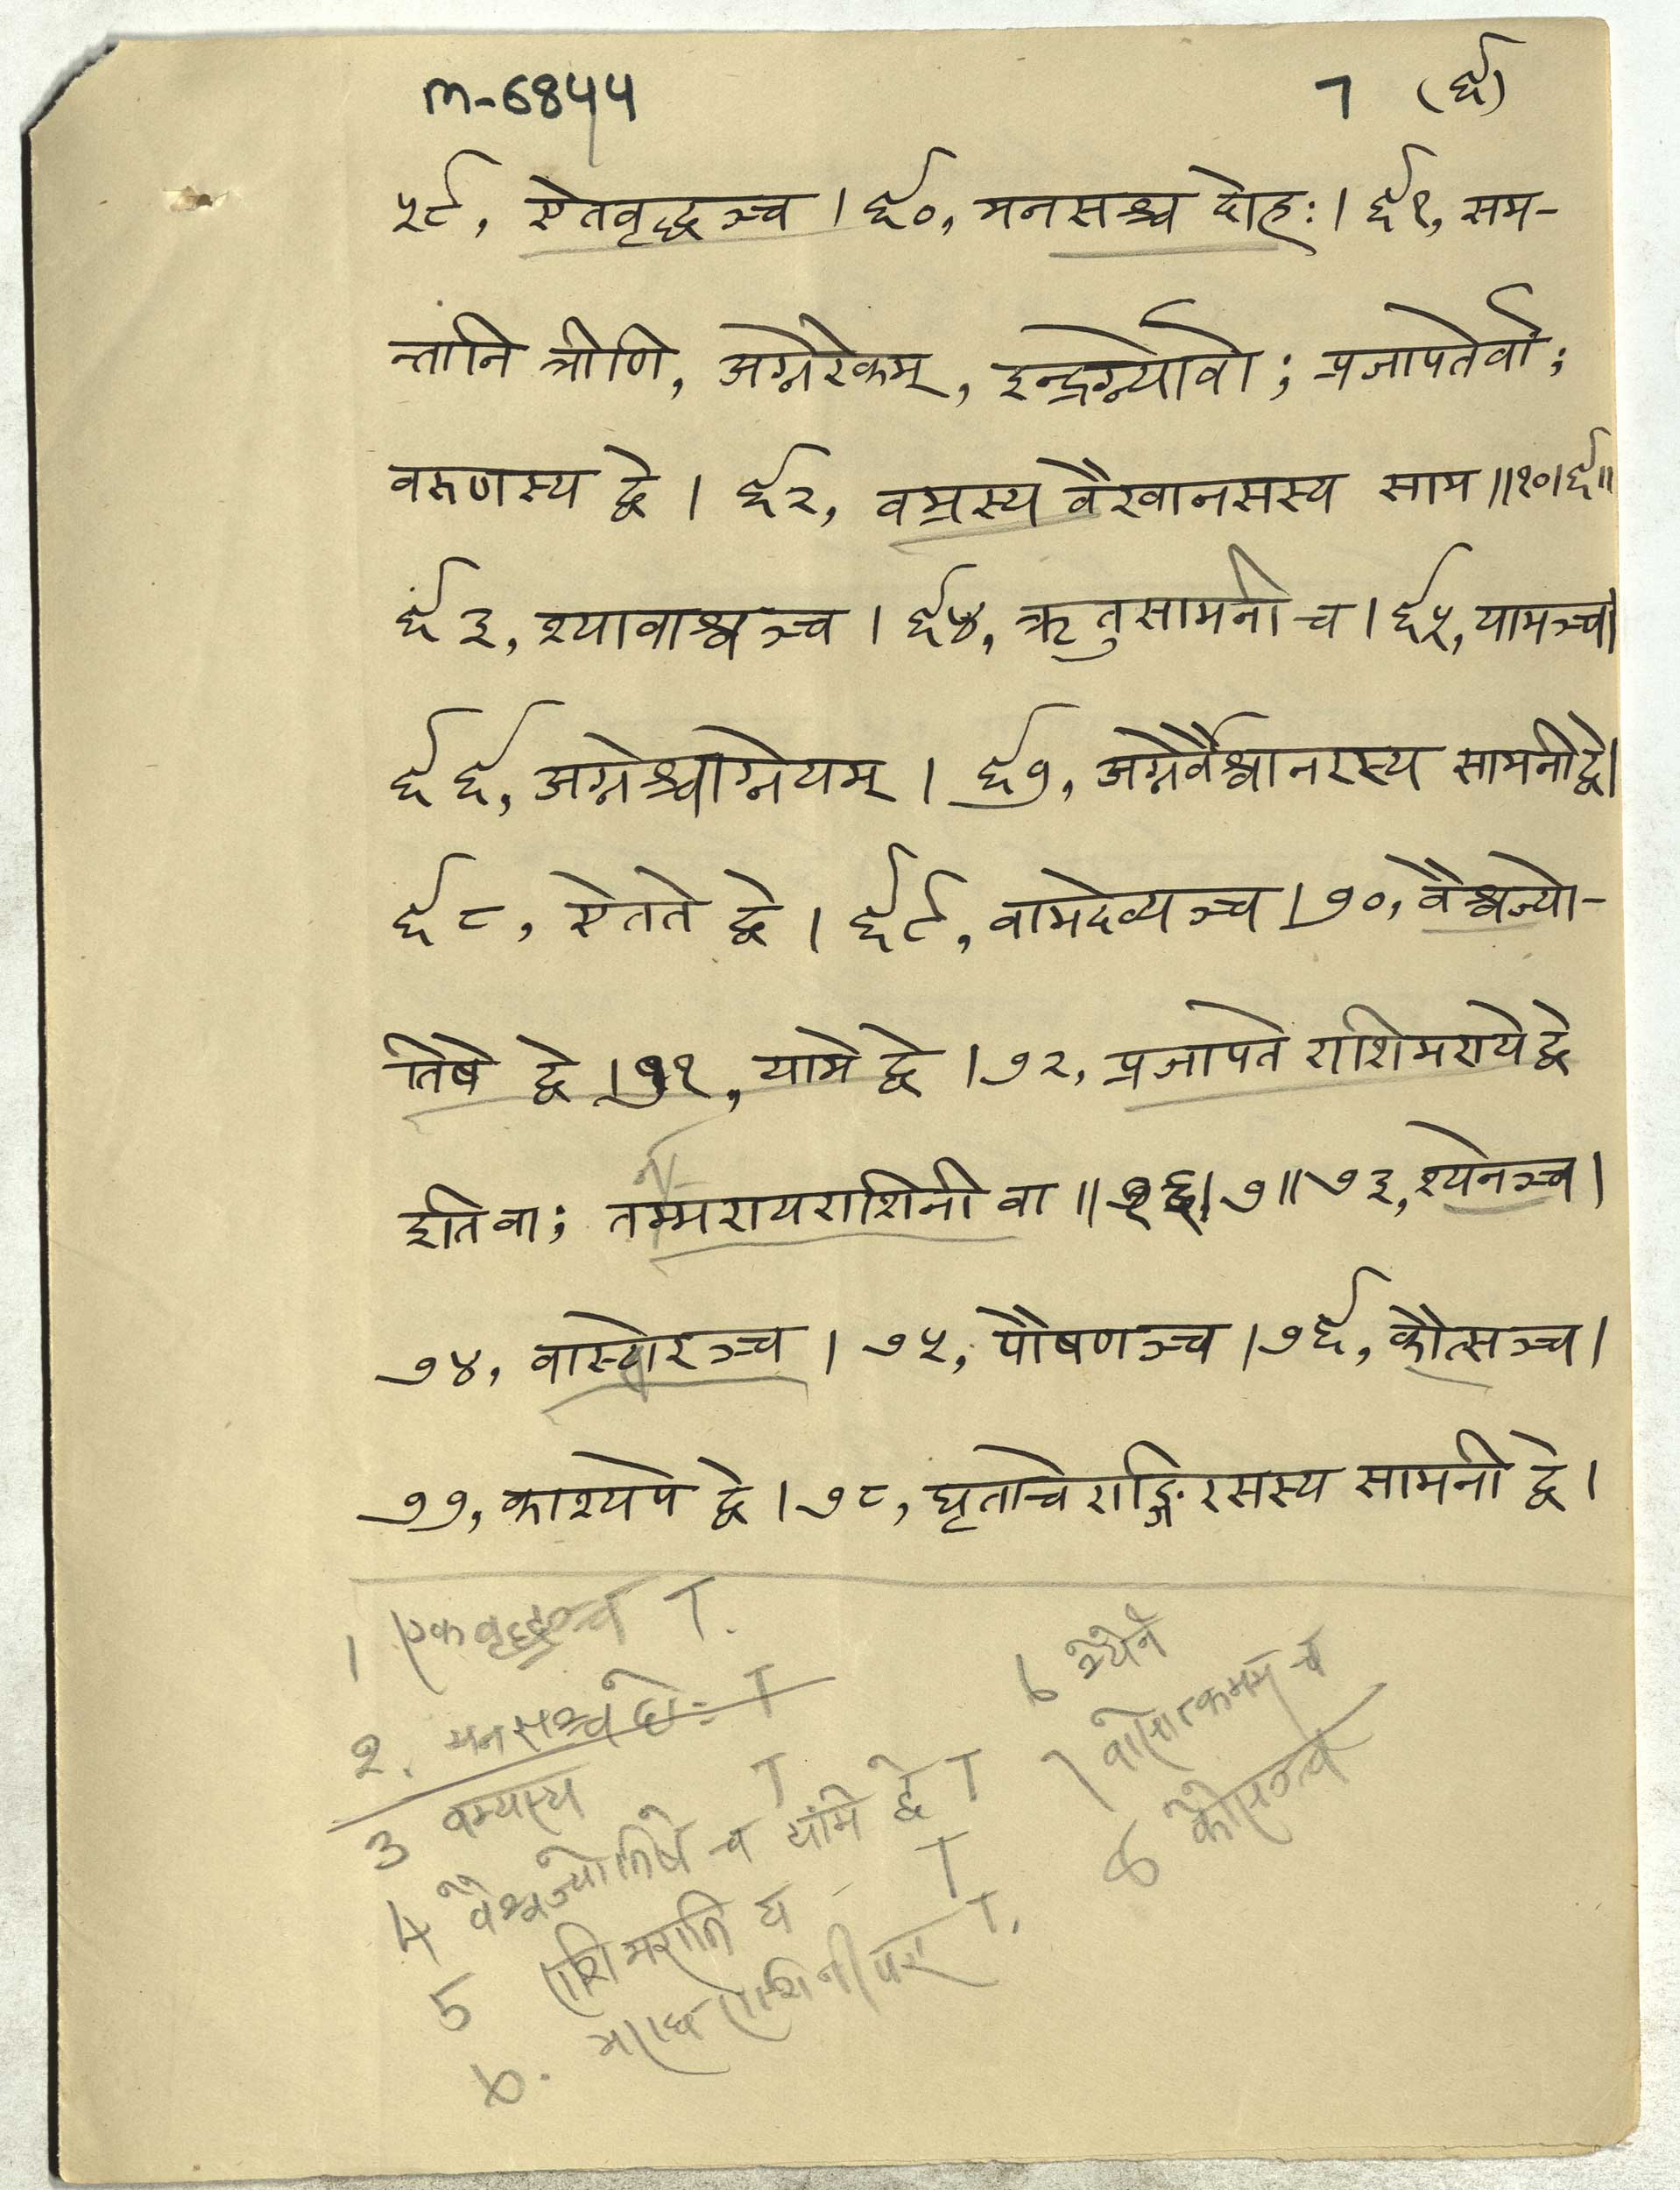 m-6844 7 (६)
५९, ऐतवृद्धञ्च । ६०, मनसश्च दोहः। ६१, सम-
न्तानि त्रीणि, अग्नेरेकम्, इन्द्रग्न्योर्वा; प्रजापतेर्वा;
वरुणस्य द्वे । ६२, वम्रस्य वैखानसस्य साम ॥१०।६॥
६३, श्यावाश्वञ्च । ६४, ऋतुसामनी च । ६५, यामञ्च।
६६, अग्नेश्चाग्नेयम् । ६७, अग्नेर्वैश्वानरस्य सामनी द्वे।
६८, ऐतते द्वे । ६९, वामदेव्यञ्च । ७०, वैश्वज्यो-
तिषे द्वे । ७१, यामे द्वे । ७२, प्रजापते राशिमराये द्वे
इति वा; तम्मरायराशिनी वा ॥१६।७॥ ७३, श्येनञ्च।
७४, वास्योरञ्च । ७५, पौषणञ्च । ७६, कौत्सञ्च ।
७७, काश्यपे द्वे । ७८, घृताचेराङ्गिरसस्य सामनी द्वे ।
1 एकवृद्धञ्च T.
२. मनसश्च दोः T
3 वम्यस्य T
4 वैश्वज्योतिषे च यामे द्वे T
5 राशिमरानि घ - T
6. T.
6 श्येने
7
8 कौसञ्च